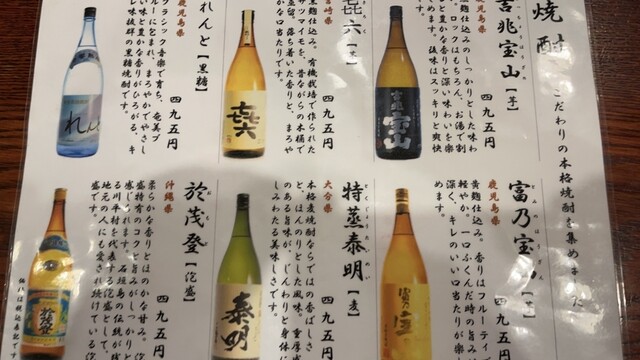 焼酎
こだわりの本格焼酎を集めました
吉兆宝山【芋】
鹿児島県
黒麹仕込みのしっかりとした味わ
い。ロックはもちろん、お湯で割
豊かな香りと深い味わいを楽
めます。後味はスッキリと爽快
四九五円
吉兆
宝山
㐂六【芋】
宮崎県
黒麹仕込、有機栽培で作られた
サツマイモを、昔ながらの木桶で
蒸留。落ち着いた香りと、まろや
かな口当たりです。
四九五円
㐂六
れんと【黒糖】
鹿児島県
クラシック音楽で育ち、奄美ブ
ルーに包まれ、まろやかでやさし
いと豊かな香りがひろがる、キ
レ味抜群の黒糖焼酎です。
四九五円
れんと
富乃宝山【芋】
鹿児島県
黄麹仕込み。香りはフルーティ
軽やか。一口ふくんだ時の旨みが
深く、キレのいい口当たりが楽し
めます。
四九五円
富乃宝山
特蒸泰明【麦】
とくじょうたいめい
大分県
本格麦焼酎ならではの香ばしさ
と、ほんのりとした風味。重厚感
のある旨味が、じんわりと身体に
しみわたる美味しさです。
四九五円
泰明
於茂登【泡盛】
おもと
沖縄県
柔らかな香りとほのかな甘み。泡
盛特有のコクと旨みがしっかりと
感じられます。石垣島の伝統が残
る川平村を代表する泡盛として、
地元の人にも愛され続けている泡
盛です。
四九五円
於茂登
価格は税込表記です